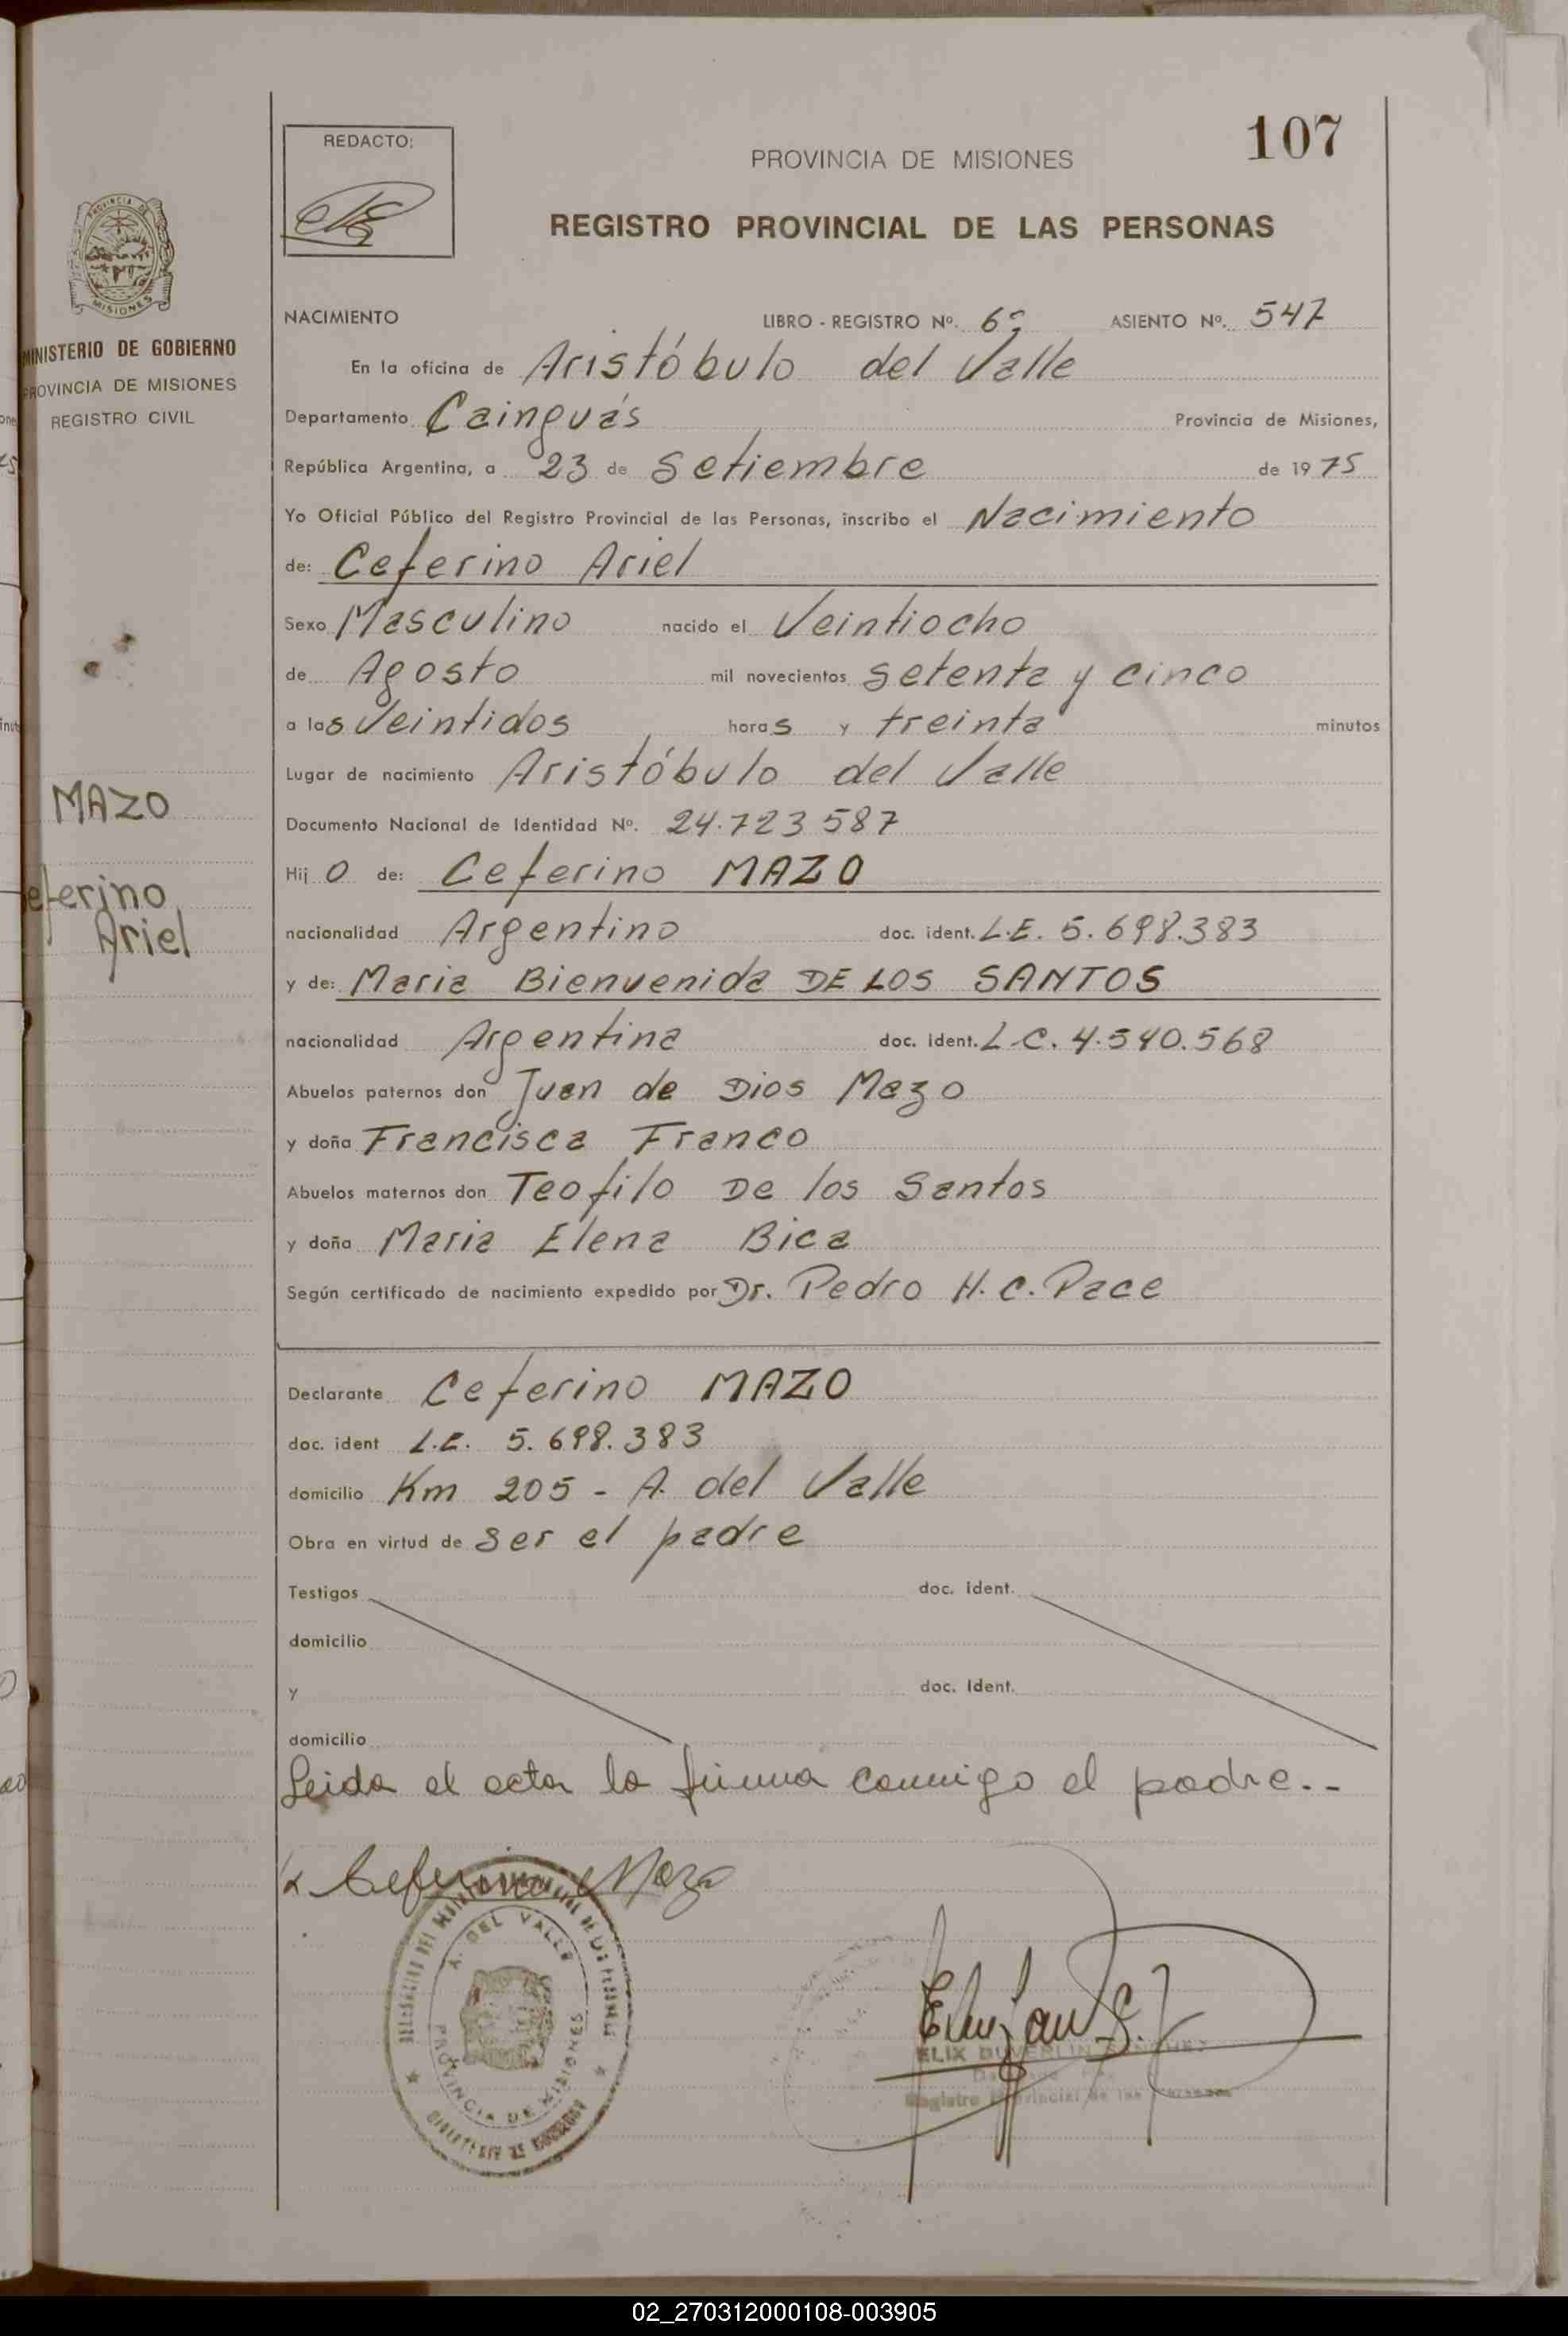 107
REDACTO:
PROVINCIA DE MISIONES
REGISTRO PROVINCIAL DE LAS PERSONAS
PROVINCIA DE
MISIONES
MINISTERIO DE GOBIERNO
PROVINCIA DE MISIONES
REGISTRO CIVIL
NACIMIENTO LIBRO - REGISTRO Nº. 6º ASIENTO Nº. 547
En la oficina de Aristóbulo del Valle
Departamento Cainguás Provincia de Misiones,
República Argentina, a 23 de Setiembre de 1975
Yo Oficial Público del Registro Provincial de las Personas, inscribo el Nacimiento
de: Ceferino Ariel
Sexo Masculino nacido el Veintiocho
de Agosto mil novecientos setenta y cinco
a las Veintidos horas y treinta minutos
Lugar de nacimiento Aristóbulo del Valle
MAZO
Documento Nacional de Identidad Nº. 24.723587
Hijo de: Ceferino MAZO
eferino
Ariel
nacionalidad Argentino doc. ident. L.E. 5.698.383
y de: Maria Bienvenida DE LOS SANTOS
nacionalidad Argentina doc. ident. L.C. 4.540.568
Abuelos paternos don Juan de Dios Mazo
y doña Francisca Franco
Abuelos maternos don Teofilo De los Santos
y doña Maria Elena Bica
Según certificado de nacimiento expedido por Dr. Pedro H.C. Pace
Declarante Ceferino MAZO
doc. ident L.E. 5.698.383
domicilio Km 205 - A. del Valle
Obra en virtud de ser el padre
Testigos doc. ident.
domicilio
y doc. ident.
domicilio
Leida el acta la firma conmigo el padre..-
Ceferino Mazo
A. DEL VALLE
PROVINCIA DE MISIONES
Registro Provincial de las Personas
02_270312000108-003905